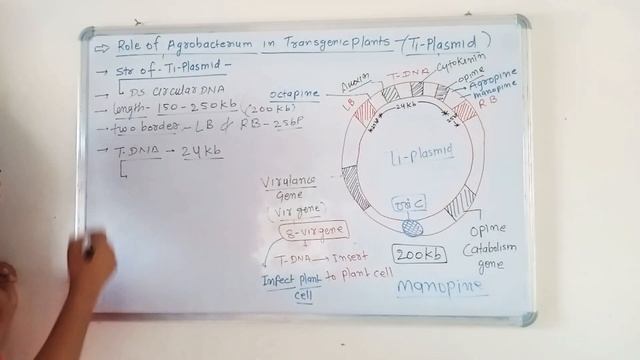 ⇒ Role of Agrobacterium in Transgenic Plants - (Ti-Plasmid)
→ Str of - Ti-Plasmid -
→ DS Circular DNA
→ length - 150-250kb (200kb)
→ two border - LB & RB - 25bP
→ T.DNA → 24kb
Auxin
T-DNA
Cytokinin
opine
Agropine
manopine
octapine
LB
RB
24kb
Li-plasmid
Virulance
Gene
(Vir gene)
8-virgene
T-DNA → Insert
to plant cell
Infect plant
cell
ori C
200kb
Opine
Catabolism
gene
Manopine